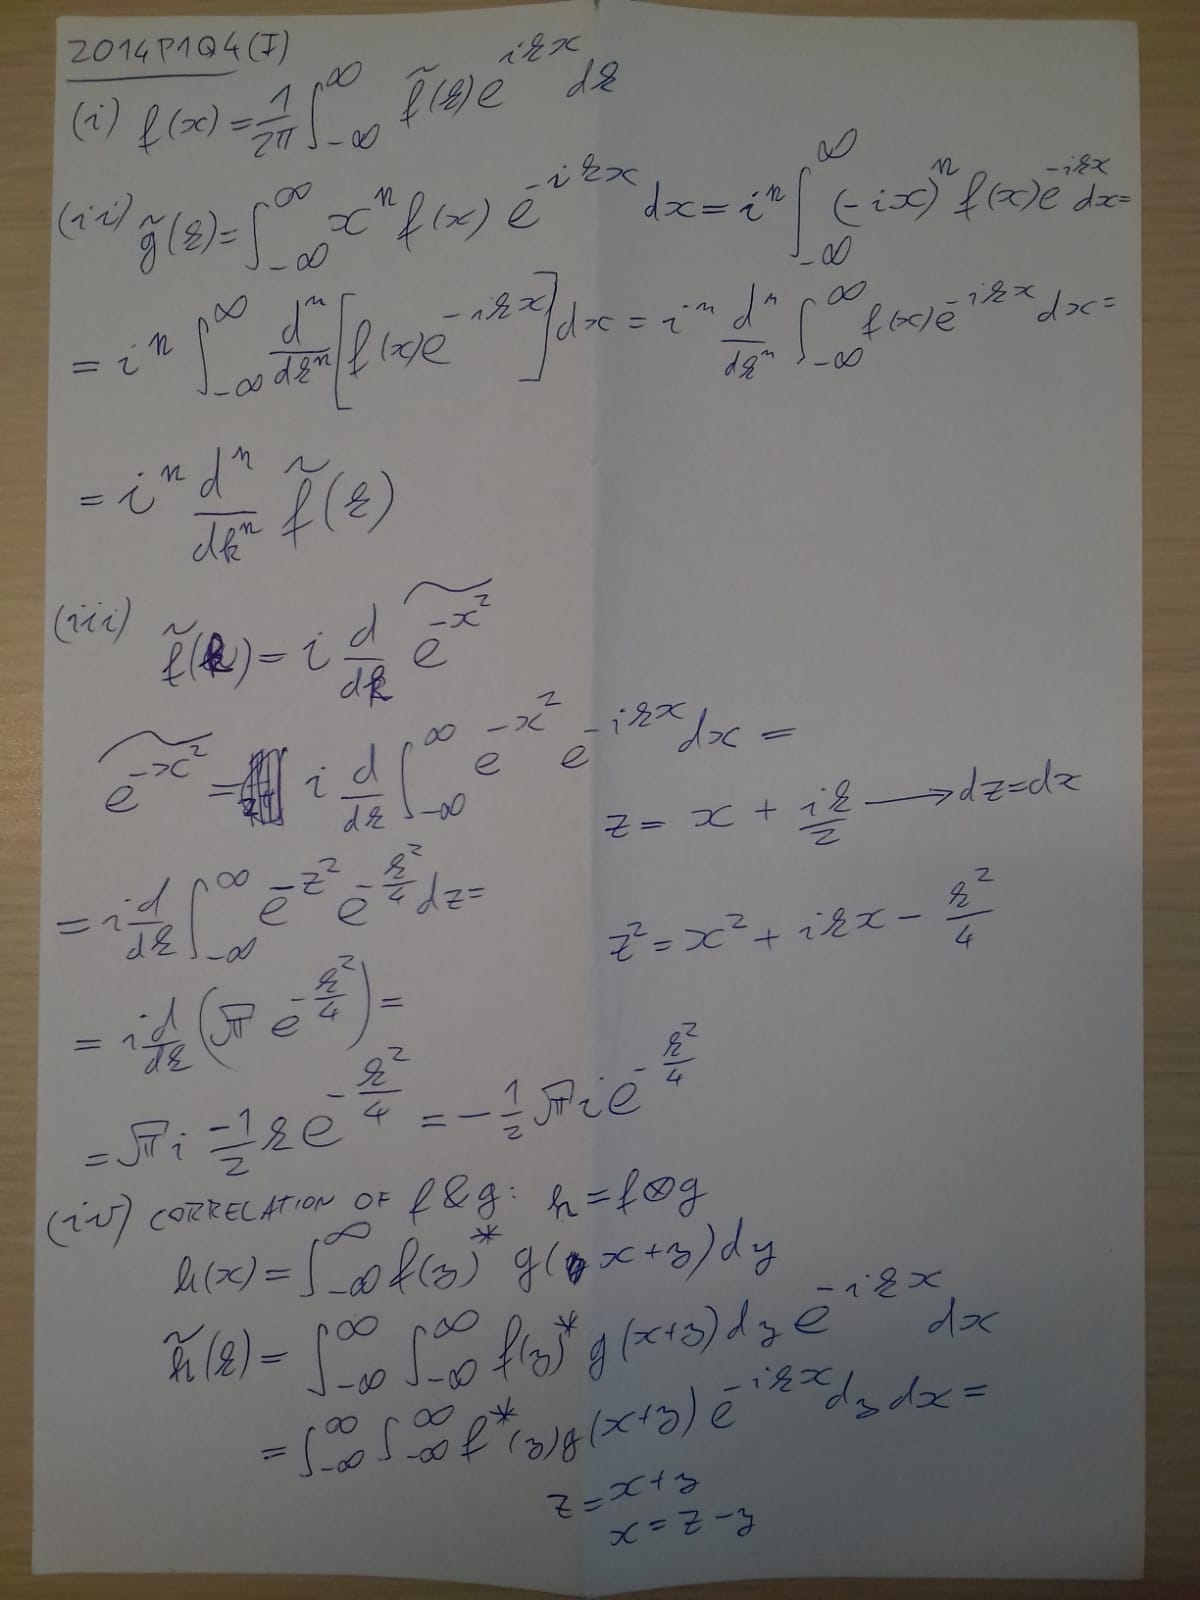 2014P1Q4(I)
(i) f(x) = 1/2π ∫_{-∞}^{∞} f̃(k) e^{ikx} dk
(ii) g̃(k) = ∫_{-∞}^{∞} x^n f(x) e^{-ikx} dx = i^n ∫_{-∞}^{∞} (-ix)^n f(x) e^{-ikx} dx =
= i^n ∫_{-∞}^{∞} d^n/dk^n [f(x) e^{-ikx}] dx = i^n d^n/dk^n ∫_{-∞}^{∞} f(x) e^{-ikx} dx =
= i^n d^n/dk^n f̃(k)
(iii) f̃(k) = i d/dk \widetilde{e^{-x^2}}
\widetilde{e^{-x^2}} = i d/dk ∫_{-∞}^{∞} e^{-x^2} e^{-ikx} dx =
z = x + ik/2 → dz = dx
= i d/dk ∫_{-∞}^{∞} e^{-z^2} e^{-k^2/4} dz =
z^2 = x^2 + ikx - k^2/4
= i d/dk (√π e^{-k^2/4}) =
= √π i -1/2 k e^{-k^2/4} = -1/2 √π i e^{-k^2/4}
(iv) CORRELATION OF f & g: h = f⊗g
h(x) = ∫_{-∞}^{∞} f(y)^* g(x+y) dy
h̃(k) = ∫_{-∞}^{∞} ∫_{-∞}^{∞} f(y)^* g(x+y) dy e^{-ikx} dx
= ∫_{-∞}^{∞} ∫_{-∞}^{∞} f^*(y) g(x+y) e^{-ikx} dy dx =
z = x+y
x = z-y